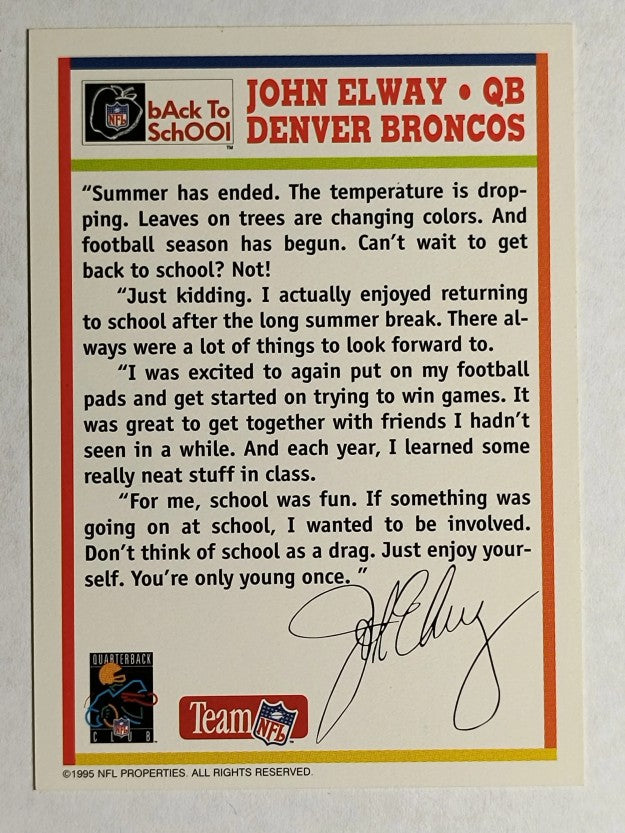 bAck To
SchOOl
TM
NFL
JOHN ELWAY • QB
DENVER BRONCOS
“Summer has ended. The temperature is drop-
ping. Leaves on trees are changing colors. And
football season has begun. Can’t wait to get
back to school? Not!
“Just kidding. I actually enjoyed returning
to school after the long summer break. There al-
ways were a lot of things to look forward to.
“I was excited to again put on my football
pads and get started on trying to win games. It
was great to get together with friends I hadn’t
seen in a while. And each year, I learned some
really neat stuff in class.
“For me, school was fun. If something was
going on at school, I wanted to be involved.
Don’t think of school as a drag. Just enjoy your-
self. You’re only young once.”
John Elway
QUARTERBACK
CLUB
NFL
Team NFL
©1995 NFL PROPERTIES. ALL RIGHTS RESERVED.